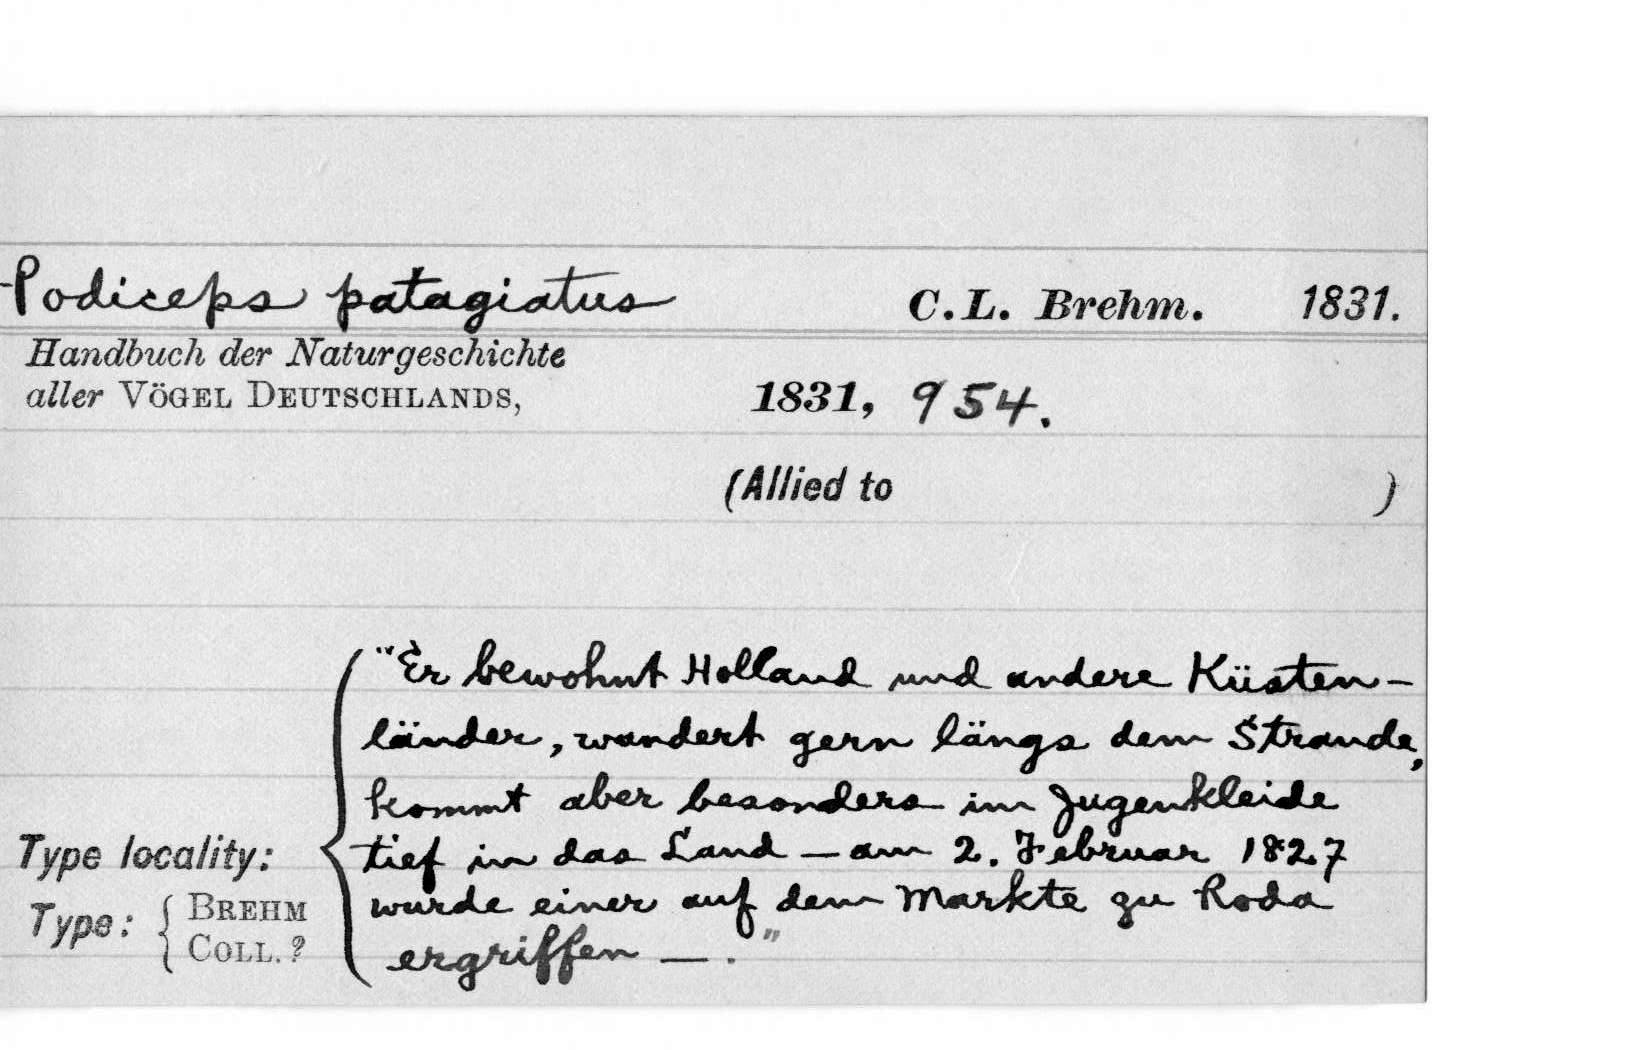 Podiceps patagiatus C. L. Brehm. 1831.
Handbuch der Naturgeschichte
aller VÖGEL DEUTSCHLANDS, 1831, 954.
(Allied to )
"Er bewohnt Holland und andere Küsten-
länder, wandert gern längs dem Strande,
kommt aber besonders im Jugenkleide
Type locality: tief in das Land — am 2. Februar 1827
Type: { BREHM COLL. ? wurde einer auf dem Markte zu Roda
ergriffen — ."